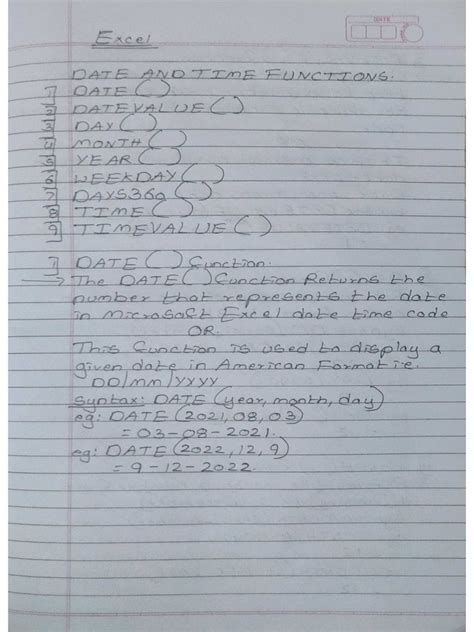 DATE
Excel
DATE AND TIME FUNCTIONS.
1 DATE ( )
2 DATEVALUE ( )
3 DAY ( )
4 MONTH ( )
5 YEAR ( )
6 WEEKDAY ( )
7 DAYS360 ( )
8 TIME ( )
9 TIMEVALUE ( )
1 DATE ( ) Function.
→ The DATE ( ) Function Returns the
number that represents the date
in Microsoft Excel date time code
OR
This Function is used to display a
given date in American Format i.e.
DD/MM/YYYY
Syntax: DATE (year, month, day)
eg: DATE (2021, 08, 03)
= 03-08-2021.
eg: DATE (2022, 12, 9)
= 9-12-2022.